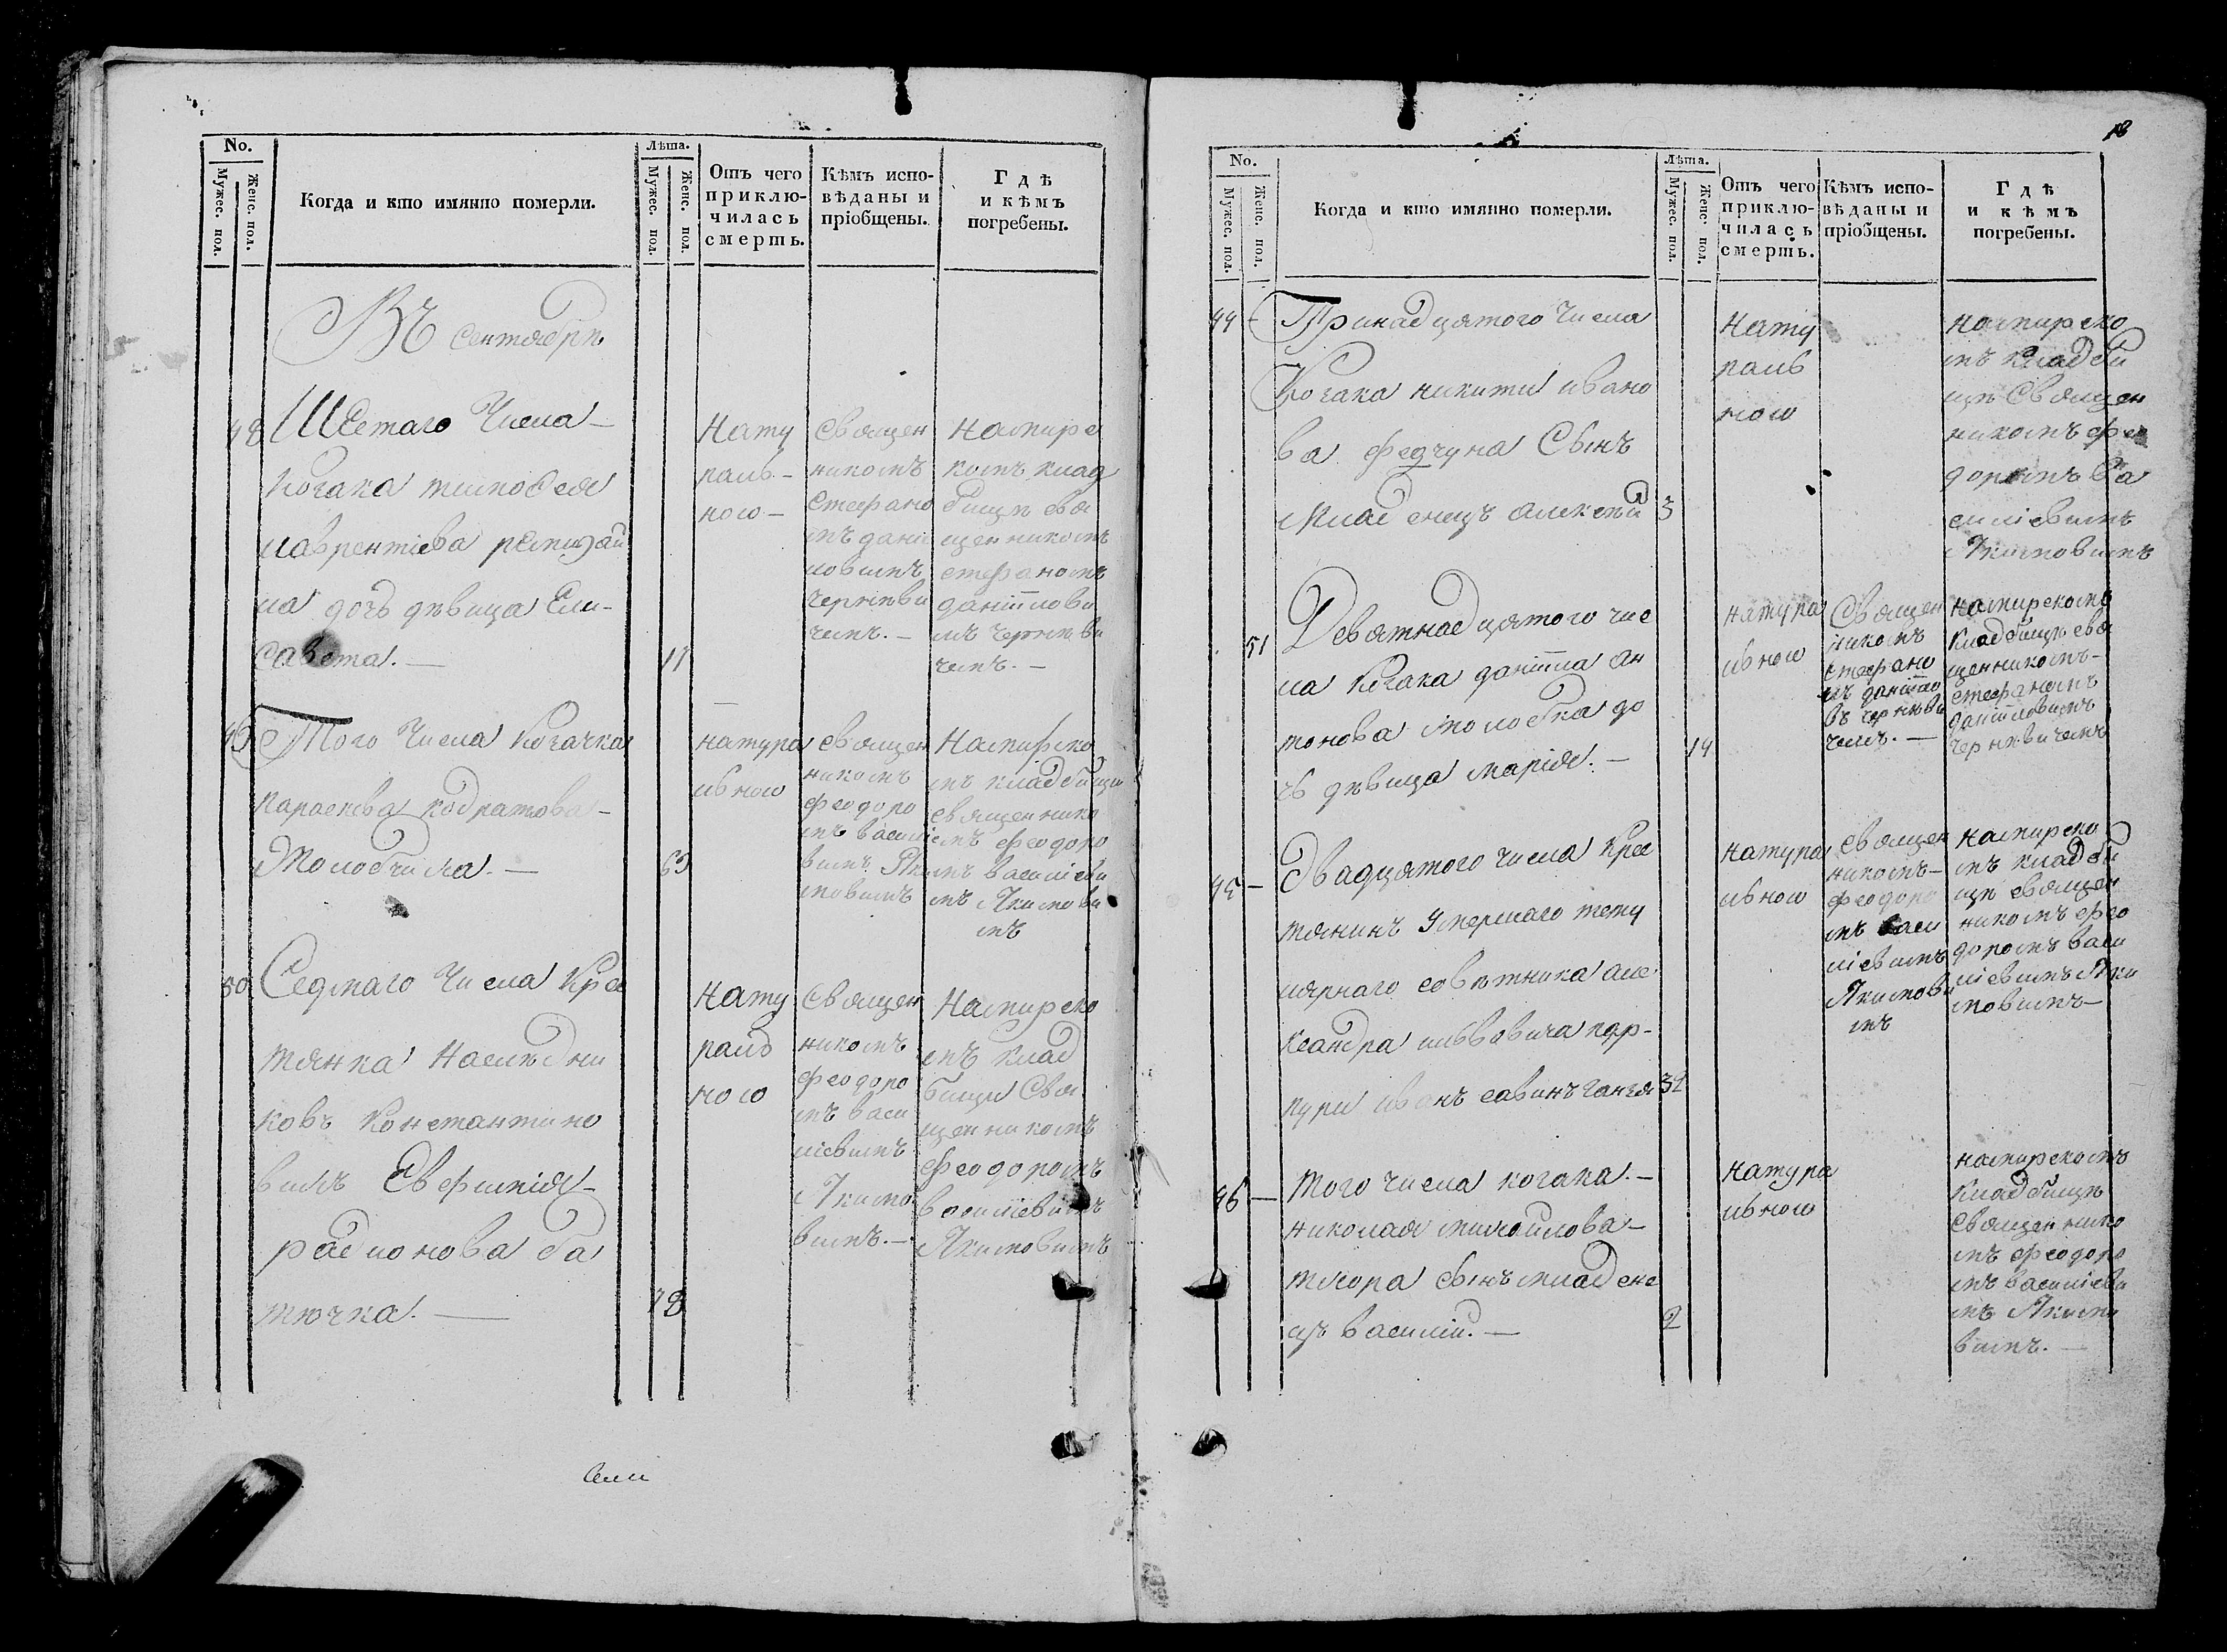 No.
Мужес. пол.
Женс. пол.
Когда и кто имянно померли.
Лѣта.
Мужес. пол.
Женс. пол.
Отъ чего
приклю-
чилась
смерть.
Кѣмъ испо-
вѣданы и
пріобщены.
Гдѣ
и кѣмъ
погребены.
Въ сентябрѣ
48
Шестаго Числа
козака тимофея
лаврентіева
ла дочь дѣвица Ели-
савета.
11
нату
раль-
ною
Священ
никомъ
Стефано
мъ дані
ловимъ
чернѣви
чемъ.
На мирс
комъ клад
бищѣ свя
щенникомъ
стефаномъ
даніилови
мъ чернѣви
чемъ.
49
Того Числа Козачка
параскева кодратова
Молобчина.
69
натура
льною
священ
никомъ
феодоро
мъ васілі
вимъ Яки
мовимъ
На мирско
мъ кладбищи
священнико
мъ феодоро
мъ василіеви
мъ Якимови
мъ
50
Седмаго Числа Крес
тянка Наслѣдни
ковъ Константино
вимъ Евфимія
радионова ба
тючка.
78
нату
раль
ною
Священ
никомъ
феодоро
мъ васи
ліевимъ
Якимо
вимъ.
На мирско
мъ клад
бищи Свя
щенникомъ
Феодоромъ
василіевимъ
Якимовимъ
18
No.
Мужес. пол.
Женс. пол.
Когда и кто имянно померли.
Лѣта.
Мужес. пол.
Женс. пол.
Отъ чего
приклю-
чилась
смерть.
Кѣмъ испо-
вѣданы и
пріобщены.
Гдѣ
и кѣмъ
погребены.
44
Тринадцятого Числа
Козака никити ивано
ва федчуна Сынъ
Младенецъ алексѣй
3
Нату
раль
ною
на мирско
мъ кладби
щѣ Священ
никомъ фео
доромъ Ва
силіевимъ
Якимовимъ
51
Девятнадцятого чис
ла Козака даніила ан
тонова молобка до
чь дѣвица марія.
14
натура
льною
Священ
никомъ
Стефано
мъ даніло
въ чернѣви
чемъ.
на мирскомъ
кладбищѣ свя
щенникомъ
Стефаномъ
даніловимъ
чернѣвичемъ
45
Двадцятого числа Крес
тянинъ Умершаго тету
лярнаго совѣтника але
ксандра львовича пар-
пури иванъ савинъ ганжа
32
натура
льною
священ
никомъ
феодоро
мъ васи
ліевимъ
Якимови
мъ
на мирско
мъ кладби
щѣ священ
никомъ фео
доромъ васи
ліевимъ Яки
мовимъ
46
Того числа козака.
николая михайлова
тхора сынъ младене
цъ василій.
2
натура
льною
на мирскомъ
кладбищѣ
Священнико
мъ феодоро
мъ василіеви
мъ Якимо
вимъ.